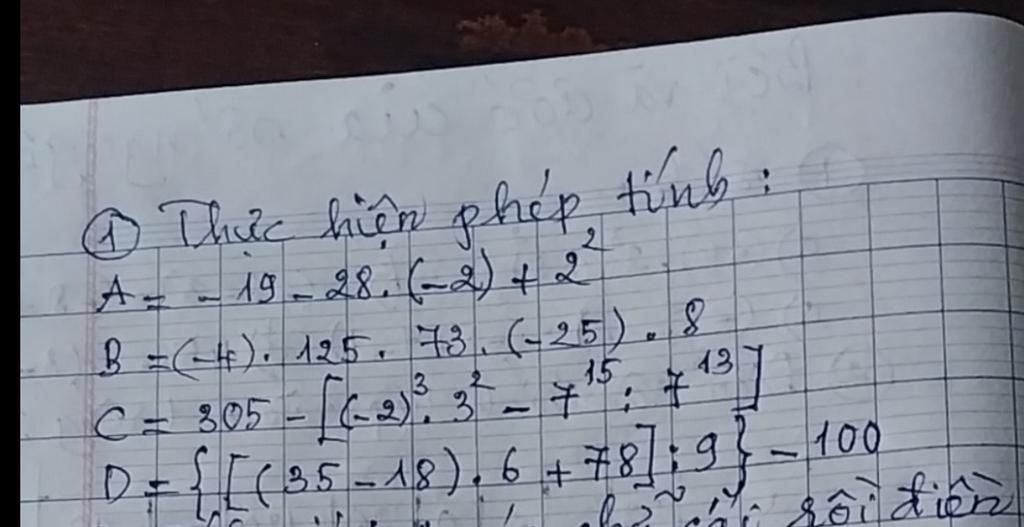 ① Thực hiện phép tính :
A = - 19 - 28. (-2) + 2²
B = (-4) . 125. 73. (-25) . 8
C = 305 - [(-2)³. 3² - 7¹⁵ : 7¹³]
D = {[(35 - 18) . 6 + 78] : 9} - 100
rồi điền